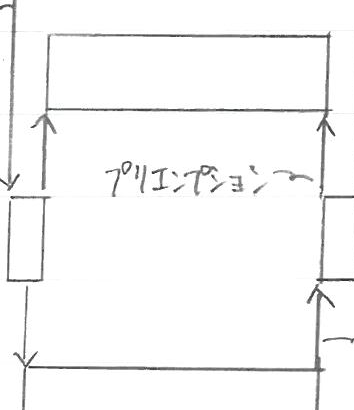 プリエンプション